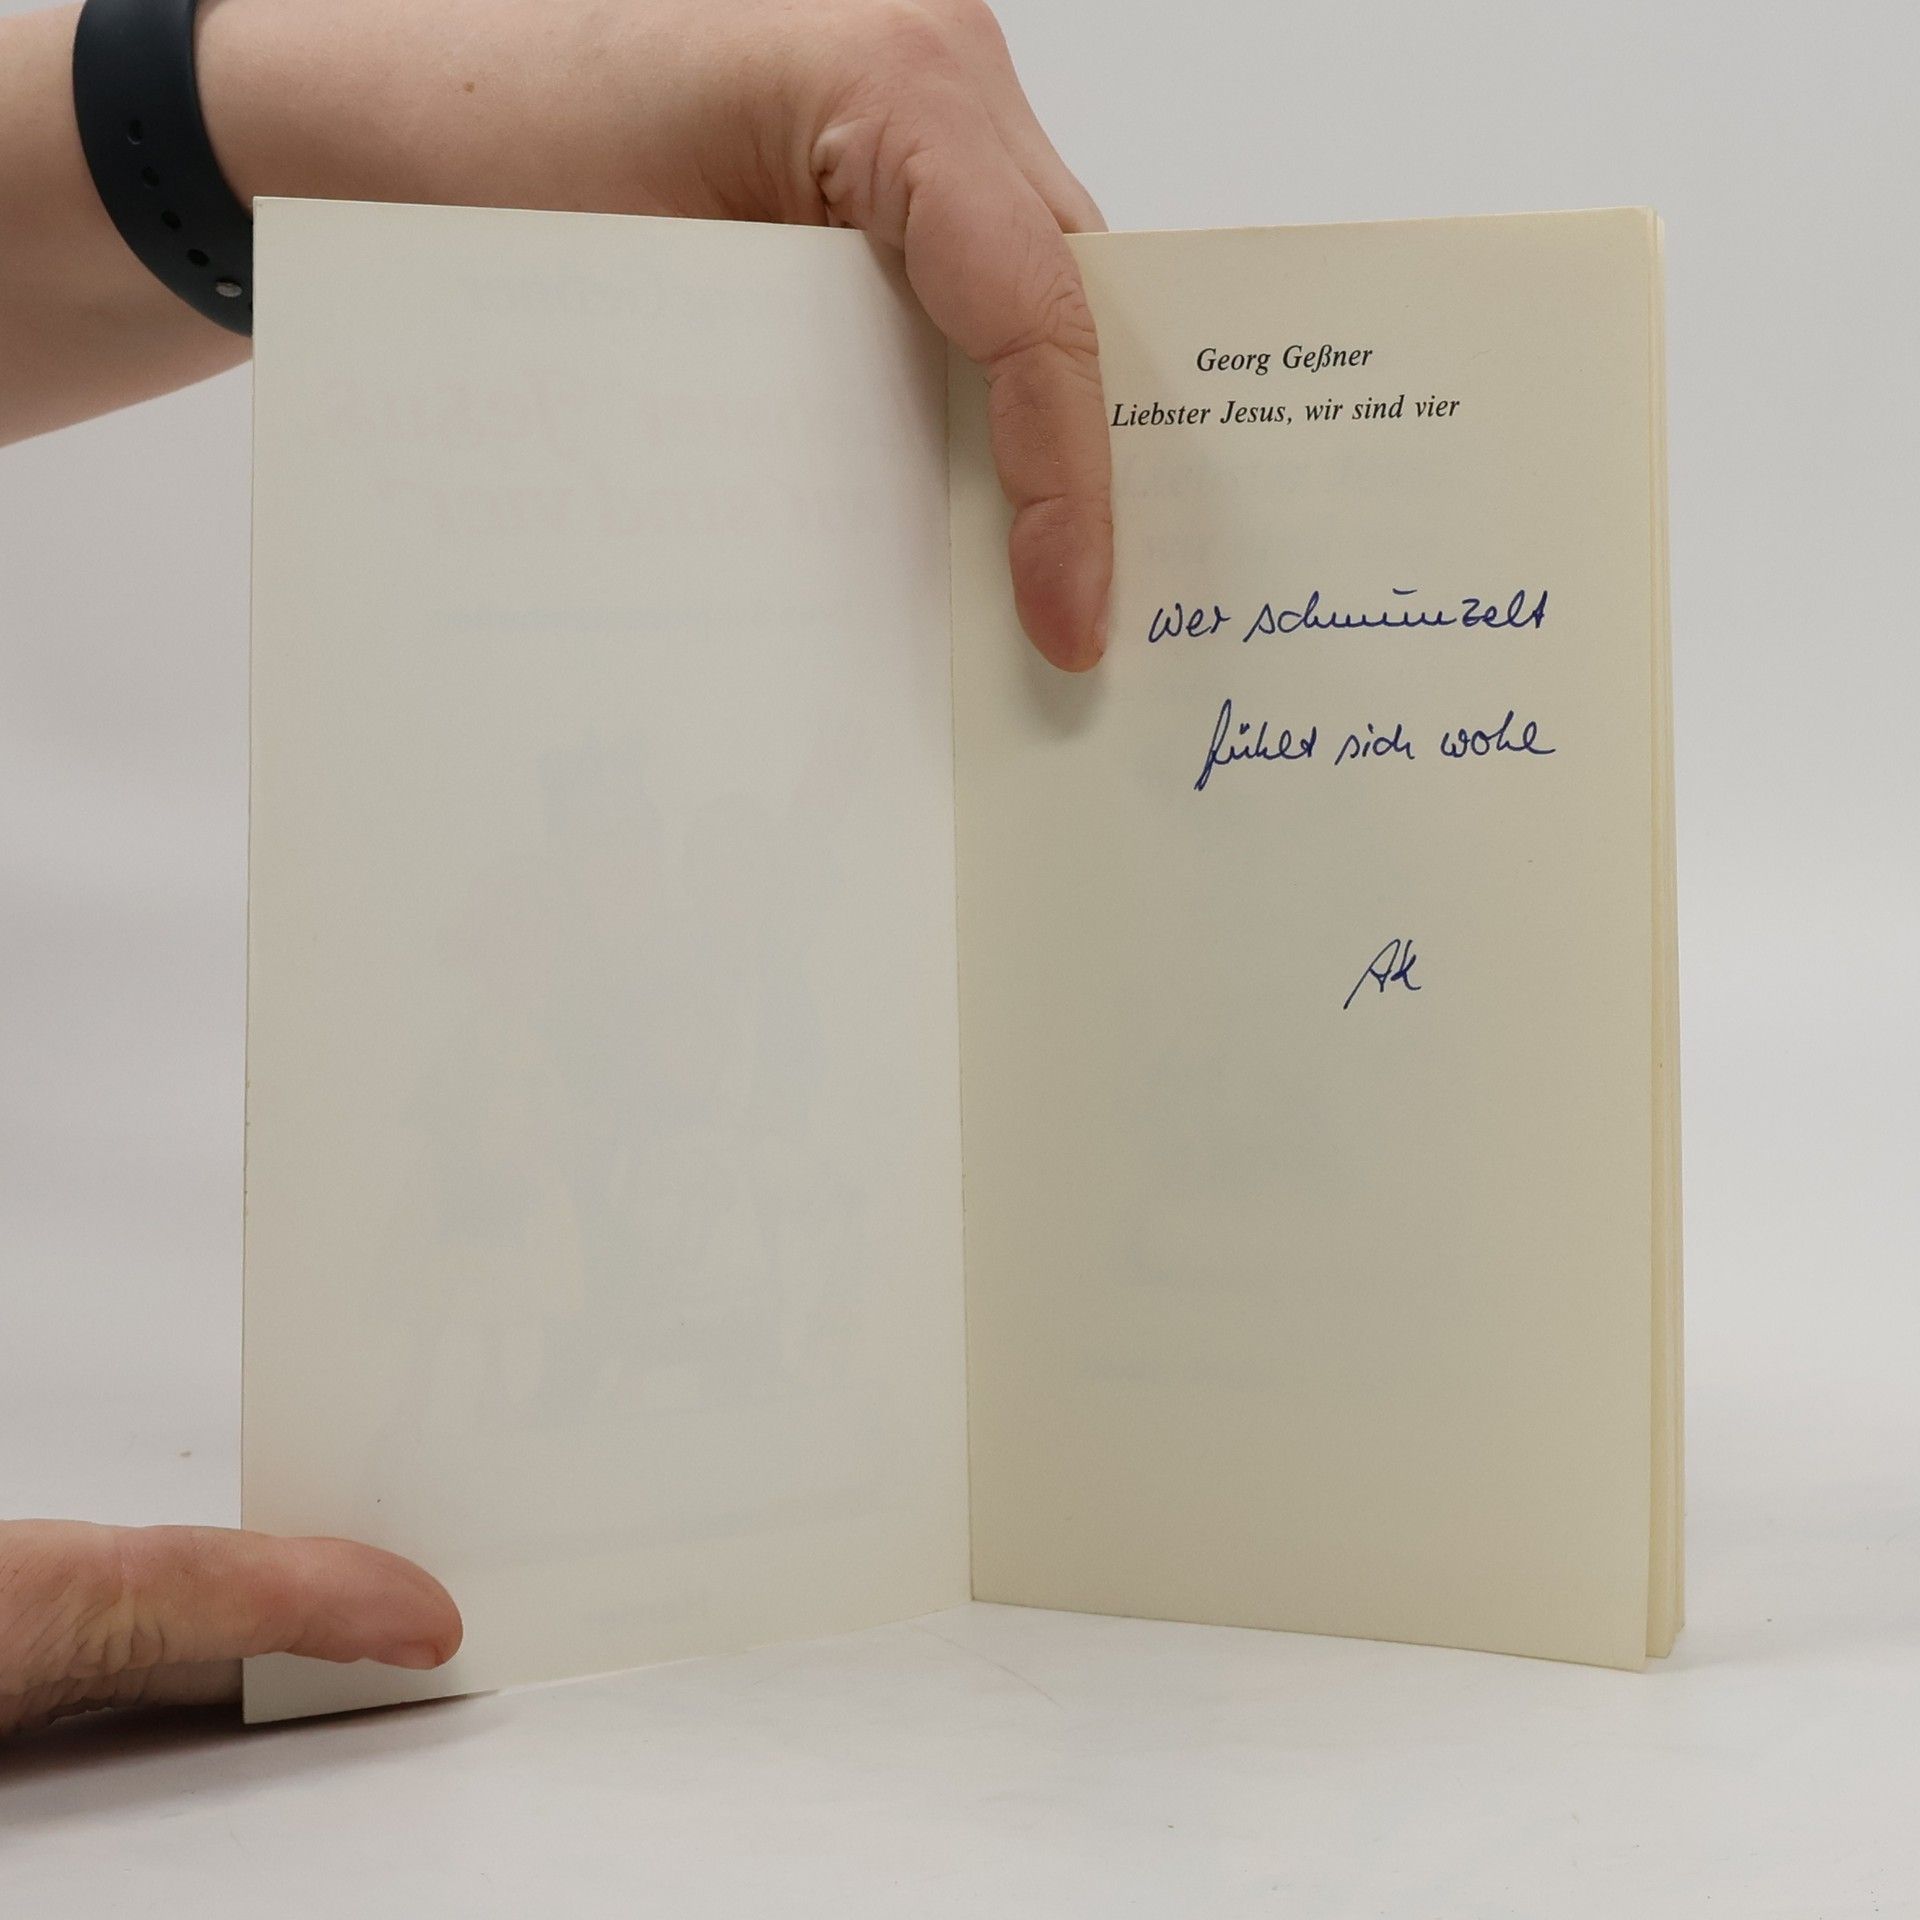 Georg Geßner
Liebster Jesus, wir sind vier
Wer schmunzelt
fühlt sich wohl
AK